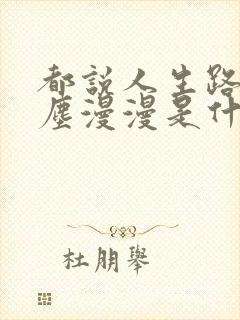 都說人生路
塵漫漫是什
杜朋舉